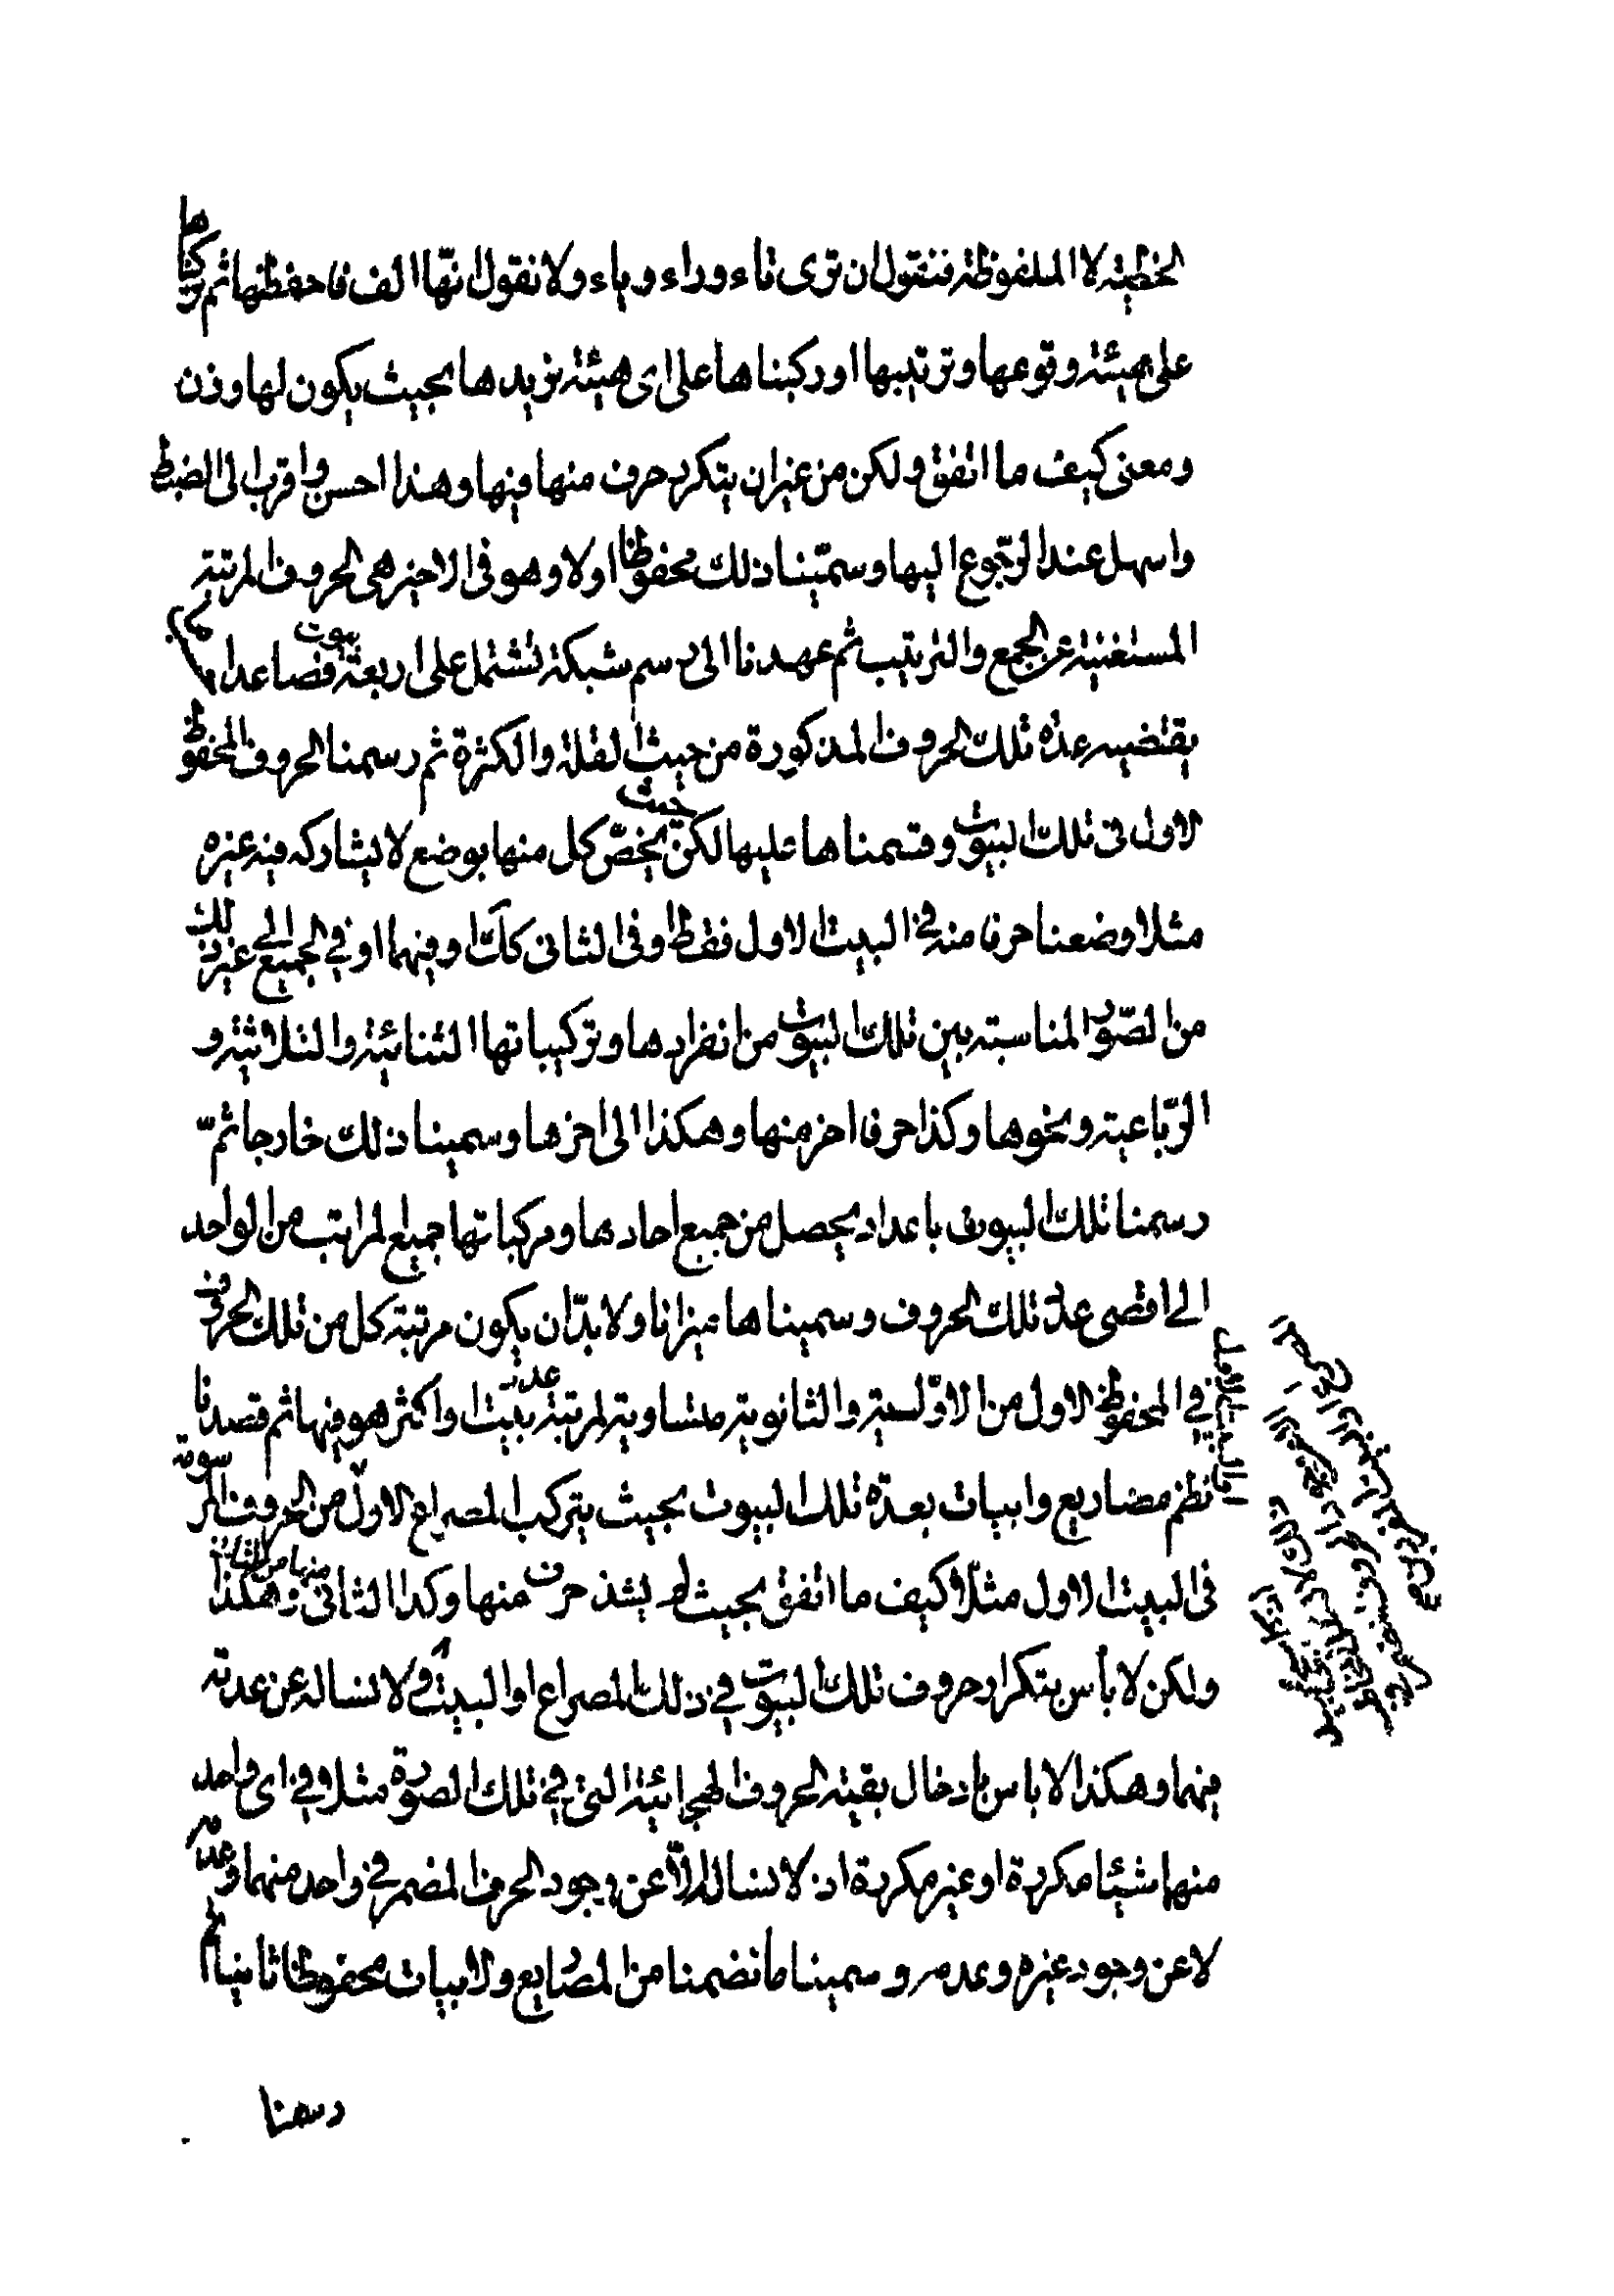 الخطية لا الملفوظة فنقول ان ترى تاء وراء وياء ولا نقول انها الف فاحفظها ثم ركبناها
على هيئة وقوعها وترتيبها او ركبناها على اى هيئة نريدها بحيث يكون لها وزن
ومعنى كيف ما اتفق ولكن من غير ان يتكرر حرف منها فيها وهذا احسن واقرب الى الضبط
واسهل عند الرجوع اليها وسمينا ذلك محفوظا اولا وهو فى الاخير هى الحروف المرتبة
المستغنية عن الجمع والترتيب ثم عهدنا الى رسم شبكة تشتمل على اربعة بيوت فصاعدا
يقتضيه عدة تلك الحروف المذكورة من حيث القلة والكثرة ثم رسمنا الحروف المحفوظ
الاول فى تلك البيوت وقسمناها عليها لكن بحيث يخص كل منها بوضع لا يشاركه فيه غيره
مثلا وضعنا حرفا منه فى البيت الاول فقط او فى الثانى كك او فيهما او فى الجميع الى غير ذلك
من الصور المناسبة بين تلك البيوت من انفرادها وتركيباتها الثنائية والثلاثية و
الرباعية ونحوها وكذا حرفا اخر منها وهكذا الى اخرها وسمينا ذلك خارجا ثم
رسمنا تلك البيوت باعداد يحصل من جميع احادها ومركباتها جميع المراتب من الواحد
الى اقصى عدة تلك الحروف وسميناها ميزانا ولا بد ان يكون مرتبة كل من تلك الحروف
فى المحفوظ الاول من الاولية والثانوية متساوية لمرتبة عدد بيت او اكثر هو فيها ثم قصدنا
نظم مصاريع وابيات بعدة تلك البيوت بحيث يتركب المصراع الاول من الحروف المرسومة
فى البيت الاول مثلا كيف ما اتفق بحيث لم يشذ حرف منها وكذا الثانى منها من الثانى وهكذا
ولكن لا بأس بتكرار حروف تلك البيوت فى ذلك المصراع او البيت ولا نسال عن عدته
فيهما وهكذا لا باس بادخال بقية الحروف الهجائية التى فى تلك الصورة مثلا فى اى واحد
منها شيئا مكررة او غير مكررة اذ لا نسال الا عن وجود الحرف المضمر فى واحد منهما وعدمه
لا عن وجود غيره وعدمه وسمينا ما تضمنا من المصاريع والابيات محفوظا ثانيا ثم
رسمنا